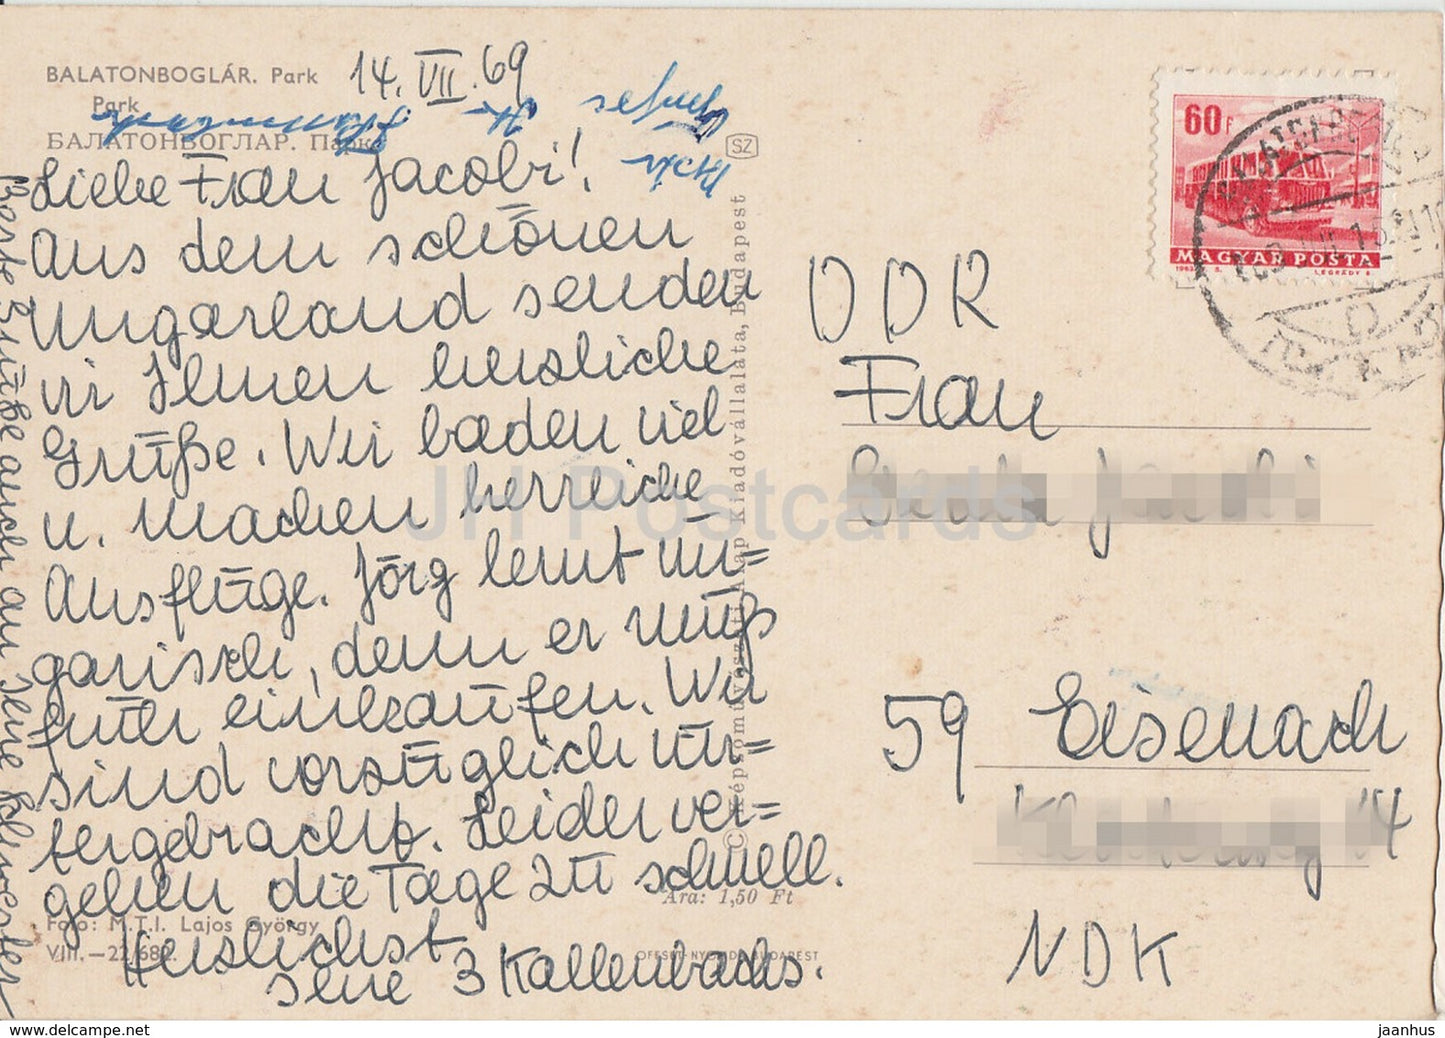 BALATONBOGLÁR. Park
14. VII. 69
Park
БАЛАТОНБОГЛАР. Парк
SZ
Liebe Frau Jacobi!
Aus dem schönen
Ungarland senden
wir Ihnen herzliche
Grüße. Wir baden viel
u. machen herrliche
Ausflüge. Jörg lernt un=
garisch, denn er muß
für einkaufen. Wir
sind vorzüglich un=
tergebracht. Leider ver=
gehen die Tage zu schnell.
Herzlichst
Ihre 3 Kallenbachs.
Beste Grüße auch an Ihre Schwester
Foto: M.T.I. Lajos György
VIII.—22/682.
Ára: 1,50 Ft
OFFSET-NYOMDA BUDAPEST
© Képzőművészeti Alap Kiadóvállalata, Budapest
60f
MAGYAR POSTA
1963
LÉGRÁDY S.
DDR
Frau
59 Eisenach
14
NDK
JH Postcards
https://jhpostcards.com/
jaanhus